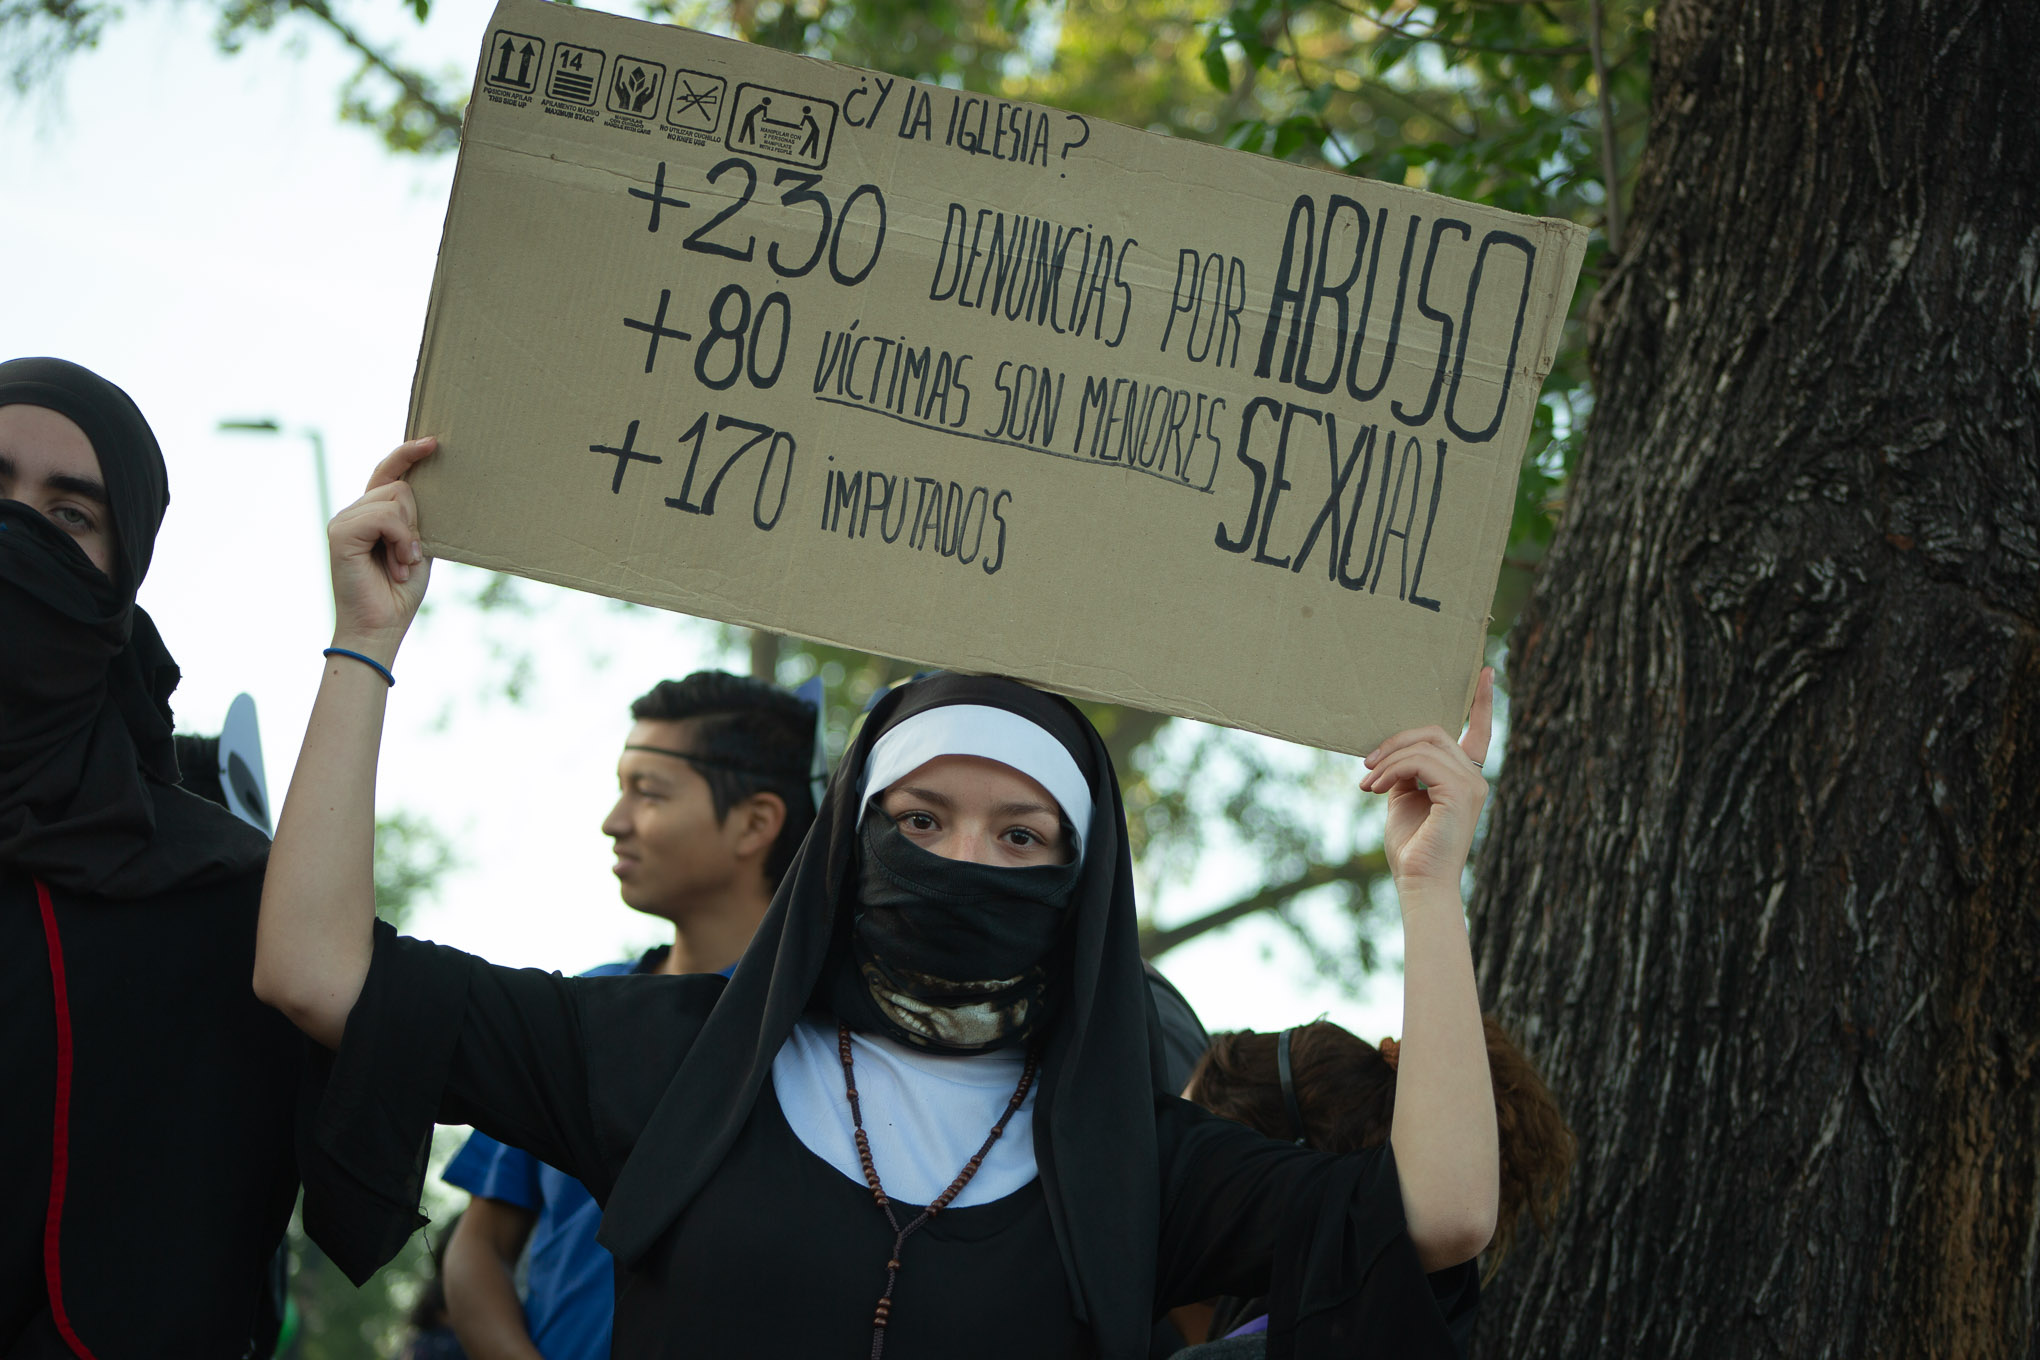 POSICION APILAR
THIS SIDE UP
14
APILAMENTO MÁXIMO
MAXIMUM STACK
MANIPULAR
CON CUIDADO
HANDLE WITH CARE
NO UTILIZAR CUCHILLO
NO KNIFE USE
MANIPULAR CON
2 PERSONAS
MANIPULATE
WITH 2 PEOPLE
¿Y LA IGLESIA?
+230 DENUNCIAS POR ABUSO
+80 VÍCTIMAS SON MENORES SEXUAL
+170 IMPUTADOS